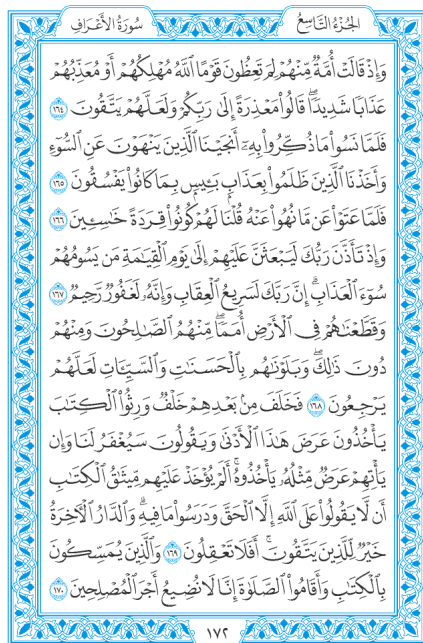 الجُزْءُ التَّاسِعُ سُورَةُ الأَعْرَافِ
وَإِذْ قَالَتْ أُمَّةٌ مِّنْهُمْ لِمَ تَعِظُونَ قَوْمًا ٱللَّهُ مُهْلِكُهُمْ أَوْ مُعَذِّبُهُمْ
عَذَابًا شَدِيدًا ۖ قَالُوا۟ مَعْذِرَةً إِلَىٰ رَبِّكُمْ وَلَعَلَّهُمْ يَتَّقُونَ ١٦٤
فَلَمَّا نَسُوا۟ مَا ذُكِّرُوا۟ بِهِۦٓ أَنجَيْنَا ٱلَّذِينَ يَنْهَوْنَ عَنِ ٱلسُّوٓءِ
وَأَخَذْنَا ٱلَّذِينَ ظَلَمُوا۟ بِعَذَابٍۭ بَـِٔيسٍۭ بِمَا كَانُوا۟ يَفْسُقُونَ ١٦٥
فَلَمَّا عَتَوْا۟ عَن مَّا نُهُوا۟ عَنْهُ قُلْنَا لَهُمْ كُونُوا۟ قِرَدَةً خَـٰسِـِٔينَ ١٦٦
وَإِذْ تَأَذَّنَ رَبُّكَ لَيَبْعَثَنَّ عَلَيْهِمْ إِلَىٰ يَوْمِ ٱلْقِيَـٰمَةِ مَن يَسُومُهُمْ
سُوٓءَ ٱلْعَذَابِ ۗ إِنَّ رَبَّكَ لَسَرِيعُ ٱلْعِقَابِ وَإِنَّهُۥ لَغَفُورٌ رَّحِيمٌ ١٦٧
وَقَطَّعْنَـٰهُمْ فِى ٱلْأَرْضِ أُمَمًا ۖ مِّنْهُمُ ٱلصَّـٰلِحُونَ وَمِنْهُمْ
دُونَ ذَٰلِكَ ۖ وَبَلَوْنَـٰهُم بِٱلْحَسَنَـٰتِ وَٱلسَّيِّـَٔاتِ لَعَلَّهُمْ
يَرْجِعُونَ ١٦٨ فَخَلَفَ مِنۢ بَعْدِهِمْ خَلْفٌ وَرِثُوا۟ ٱلْكِتَـٰبَ
يَأْخُذُونَ عَرَضَ هَـٰذَا ٱلْأَدْنَىٰ وَيَقُولُونَ سَيُغْفَرُ لَنَا وَإِن
يَأْتِهِمْ عَرَضٌ مِّثْلُهُۥ يَأْخُذُوهُ ۚ أَلَمْ يُؤْخَذْ عَلَيْهِم مِّيثَـٰقُ ٱلْكِتَـٰبِ
أَن لَّا يَقُولُوا۟ عَلَى ٱللَّهِ إِلَّا ٱلْحَقَّ وَدَرَسُوا۟ مَا فِيهِ ۗ وَٱلدَّارُ ٱلْـَٔاخِرَةُ
خَيْرٌ لِّلَّذِينَ يَتَّقُونَ ۗ أَفَلَا تَعْقِلُونَ ١٦٩ وَٱلَّذِينَ يُمَسِّكُونَ
بِٱلْكِتَـٰبِ وَأَقَامُوا۟ ٱلصَّلَوٰةَ إِنَّا لَا نُضِيعُ أَجْرَ ٱلْمُصْلِحِينَ ١٧٠
١٧٢